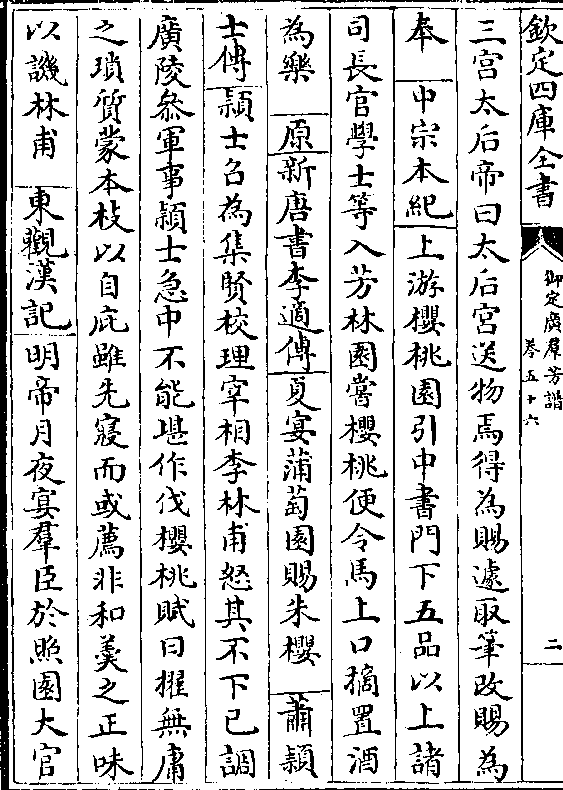 欽定四庫全書
御定廣羣芳譜
卷五十六
二
三宮太后帝曰太后宮送物焉得為賜遽取筆改賜為
奉 中宗本紀上游櫻桃園引中書門下五品以上諸
司長官學士等入芳林園嘗櫻桃便令馬上口摘置酒
為樂 原新唐書李適傳夏宴蒲萄園賜朱櫻 蕭穎
士傳穎士召為集賢校理宰相李林甫怒其不下已調
廣陵叅軍事穎士急中不能堪作伐櫻桃賦曰擢無庸
之瑣質蒙本枝以自庇雖先寢而或薦非和羮之正味
以譏林甫 東觀漢記明帝月夜宴羣臣於照園大官